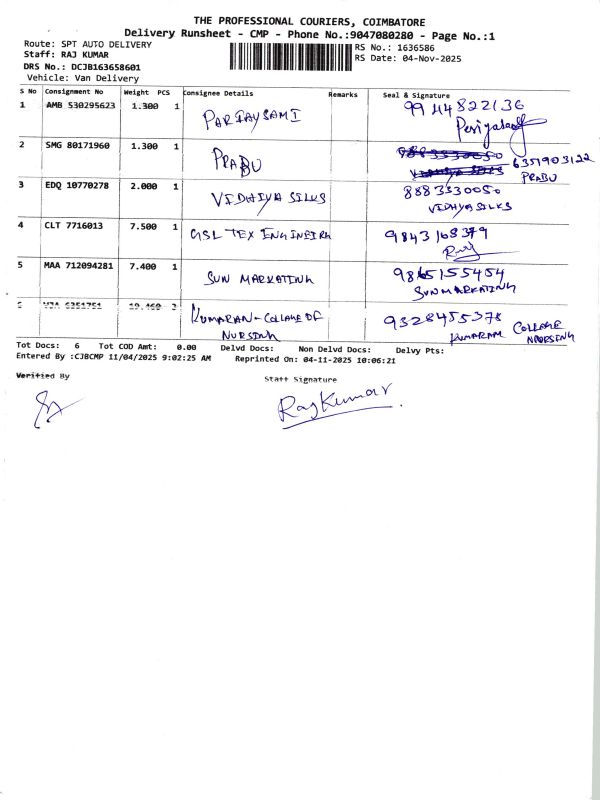 THE PROFESSIONAL COURIERS, COIMBATORE
Delivery Runsheet - CMP - Phone No.:9047080280 - Page No.:1
Route: SPT AUTO DELIVERY
Staff: RAJ KUMAR
RS No.: 1636586
DRS No.: DCJB163658601
RS Date: 04-Nov-2025
Vehicle: Van Delivery
S No Consignment No Weight PCS Consignee Details Remarks Seal & Signature
1 AMB 530295623 1.300 1 PARIAYSAMI 9944822136
Periyasamy
2 SMG 80171960 1.300 1 PRABU 8883330050 6351903122
VIDHYA SILKS PRABU
3 EDQ 10770278 2.000 1 VIDHIYA SILKS 8883330050
VIDHYA SILKS
4 CLT 7716013 7.500 1 GSL TEX ENGINEIRG 9843168379
Raj
5 MAA 712094281 7.400 1 SUN MARKATING 9865155454
SUN MARKATING
6 VJA 6351751 19.460 2 KUMARAN - COLLAGE OF 9328455378
NURSING KUMARAM COLLAGE
NOURSENG
Tot Docs: 6 Tot COD Amt: 0.00 Delvd Docs: Non Delvd Docs: Delvy Pts:
Entered By :CJBCMP 11/04/2025 9:02:25 AM Reprinted On: 04-11-2025 10:06:21
Verified By
Staff Signature
RajKumar.